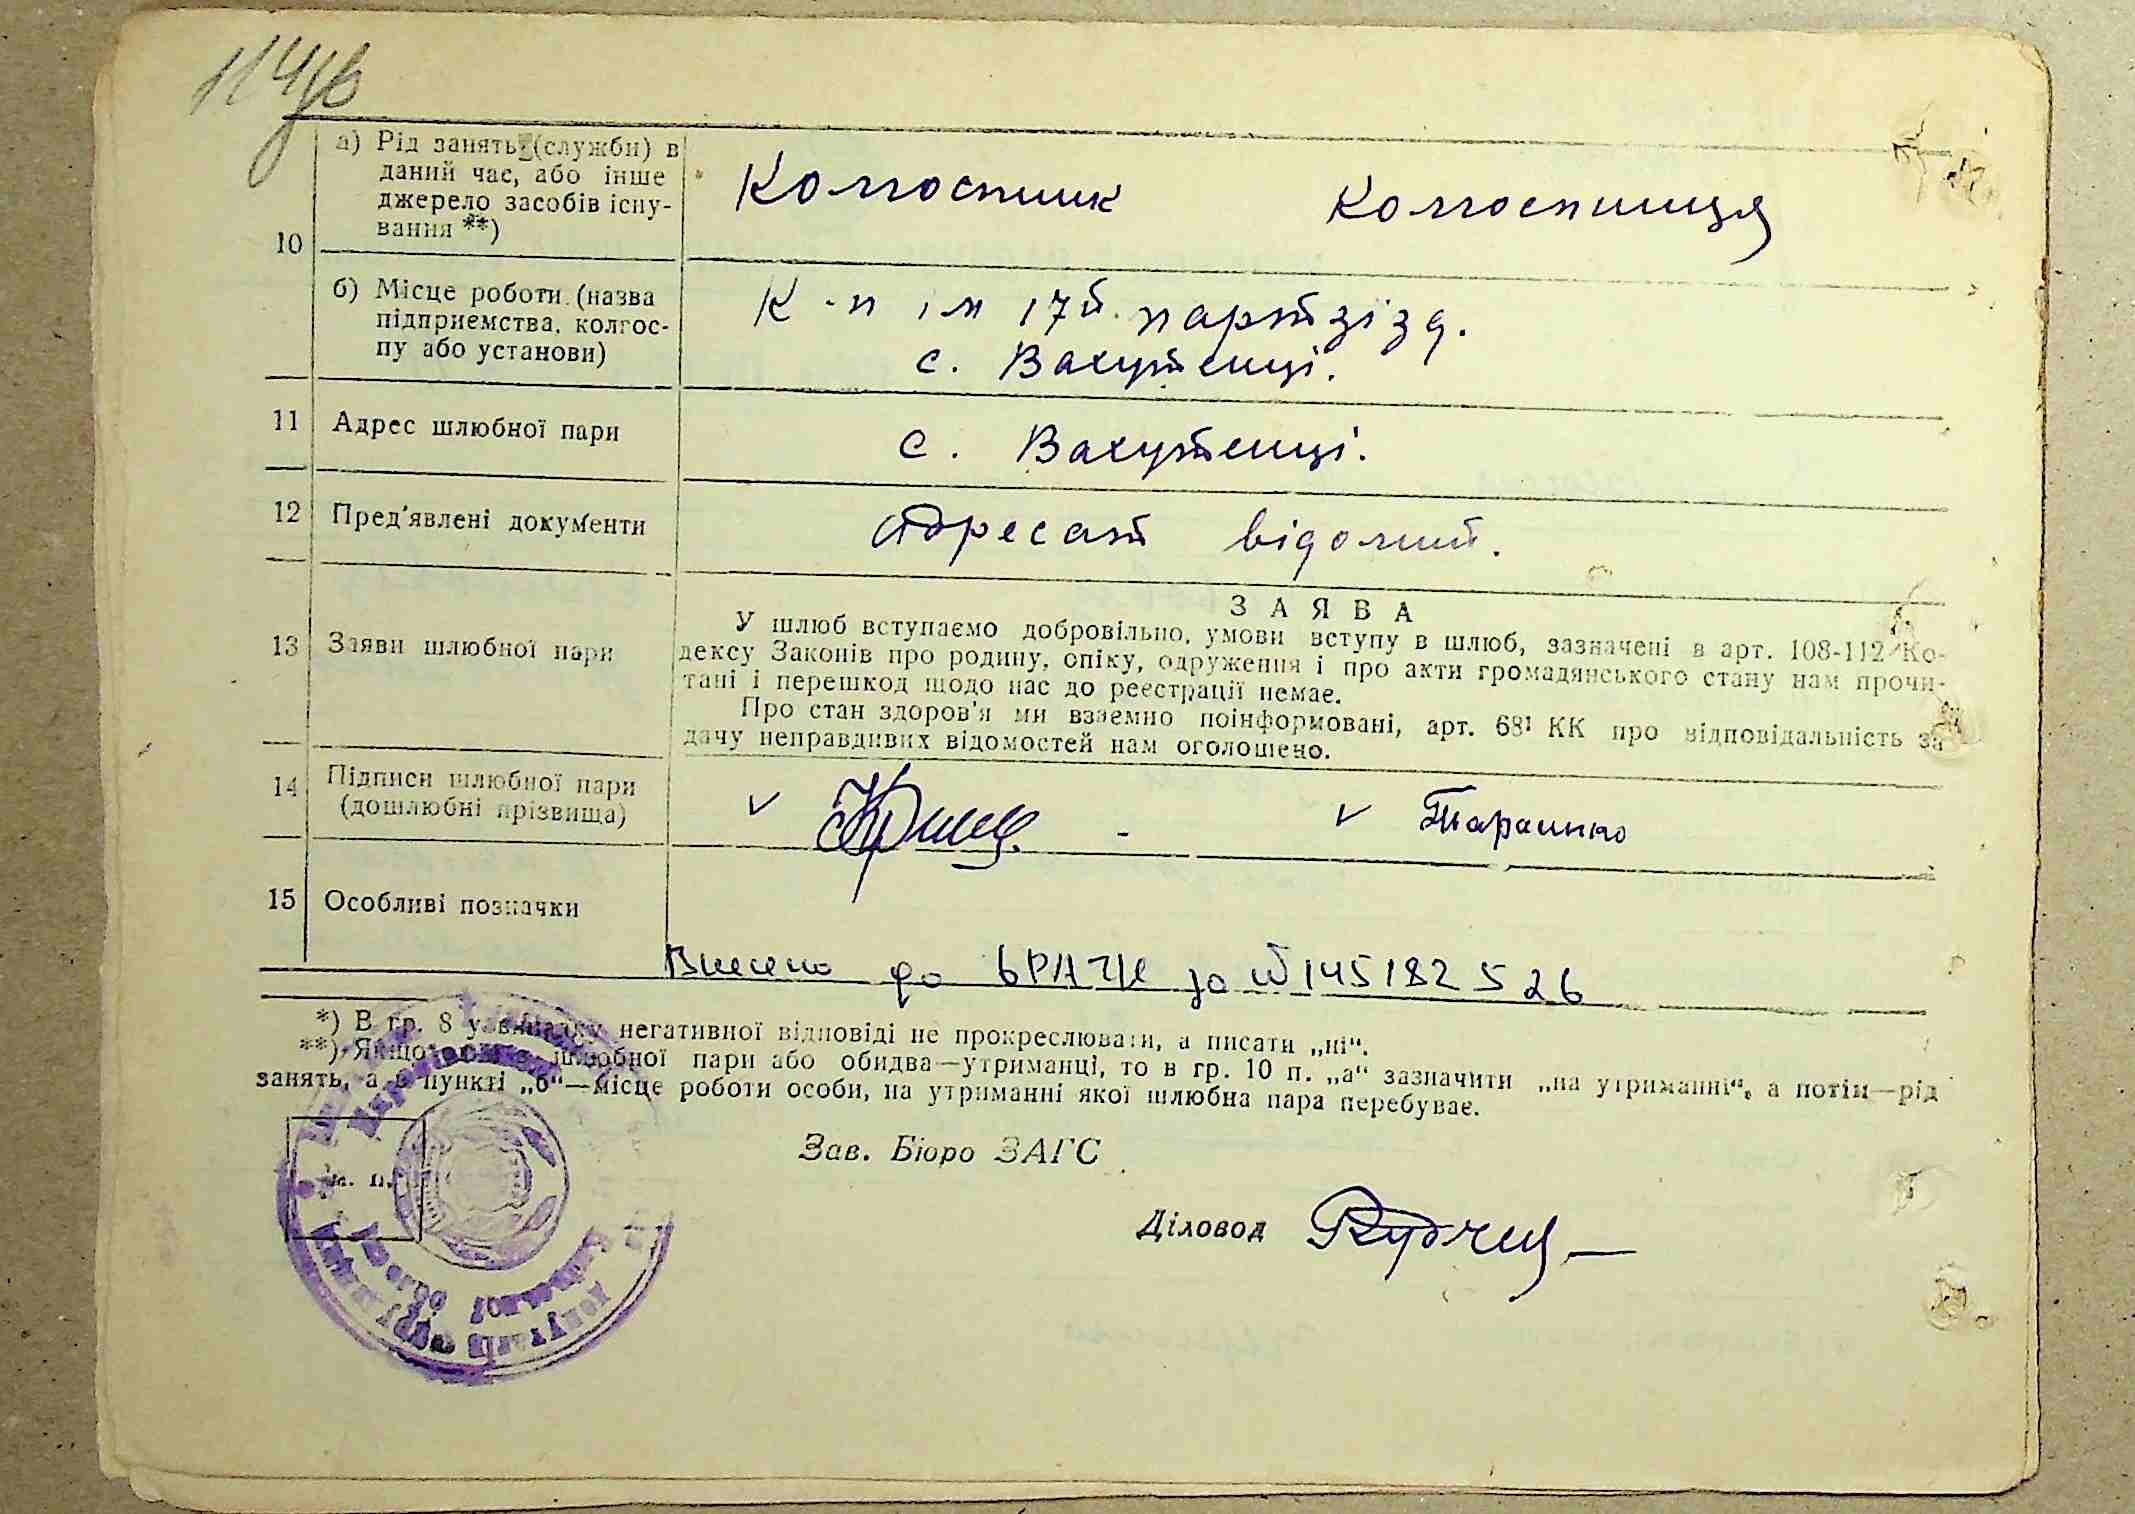 114
а) Рід занять (служби) в
даний час, або інше
джерело засобів існу-
вання **)
Колгоспник Колгоспниця
10
б) Місце роботи (назва
підприємства, колгос-
пу або установи)
К-п ім 17й партзізд.
с. Вахутенці.
11 Адрес шлюбної пари
с. Вахутенці.
12 Пред'явлені документи
Адресат відомий.
13 Заяви шлюбної пари
ЗАЯВА
У шлюб вступаємо добровільно, умови вступу в шлюб, зазначені в арт. 108-112 Ко-
дексу Законів про родину, опіку, одруження і про акти громадянського стану нам прочи-
тані і перешкод щодо нас до реєстрації немає.
Про стан здоров'я ми взаємно поінформовані, арт. 68¹ КК про відповідальність за
дачу неправдивих відомостей нам оголошено.
14 Підписи шлюбної пари
(дошлюбні прізвища)
15 Особливі позначки
Внесено до ДРАЦС за №145182526
*) В гр. 8 у випадку негативної відповіді не прокреслювати, а писати „ні“.
**) Якщо шлюбної пари або обидва—утриманці, то в гр. 10 п. „а“ зазначити „на утриманні“, а потім—рід
занять, а в пункті „б“—місце роботи особи, на утриманні якої шлюбна пара перебуває.
Зав. Бюро ЗАГС
м. п.
Діловод